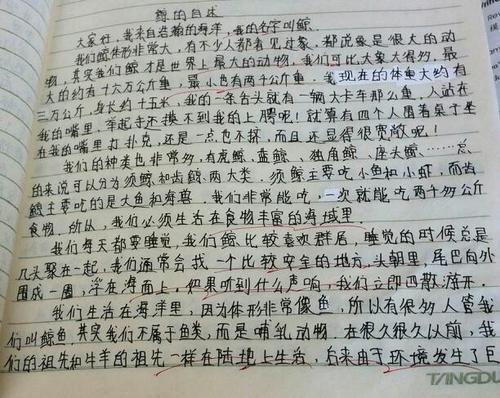 鲸的自述
大家好,我来自浩瀚的海洋,我的名字叫鲸、
我们鲸体形非常大,有不少人都看见过象,都说象是很大的动
物,其实我们鲸才是世界上最大的动物,我们可比大象大得多,最
大的约有十六万公斤重,最小也有两千公斤重。我现在的体重大约有
三万公斤,身长约十五米,我的一条舌头就有一辆大卡车那么重,人站在
我的嘴里,举起手还摸不到我的上腭呢!就算有四个人围着桌子坐
在我的嘴里打扑克,还是一点也不挤,而且还显得很宽敞呢!
我们的种类也非常多,有虎鲸、蓝鲸、独角鲸、座头鲸……总
的来说可以分为须鲸和齿鲸两大类。须鲸主要吃小鱼和小虾,而齿
鲸主要吃的是大鱼和海兽。我们非常能吃,一次就能吃两千多公斤
食物。所以,我们必须生活在食物丰富的海域里.
我们每天都要睡觉,我们鲸比较喜欢群居,睡觉的时候总是
几头聚在一起,我们通常会找一个比较安全的地方,头朝里,尾巴向外
围成一圈,浮在海面上,如果听到什么声响,我们立即四散游开.
我们生活在海洋里,因为体形非常像鱼,所以有很多人管我
们叫鲸鱼,其实我们不属于鱼类,而是哺乳动物.在很久很久以前,我
们的祖先和牛羊的祖先一样在陆地上生活,后来由于环境发生了巨
TANGDU